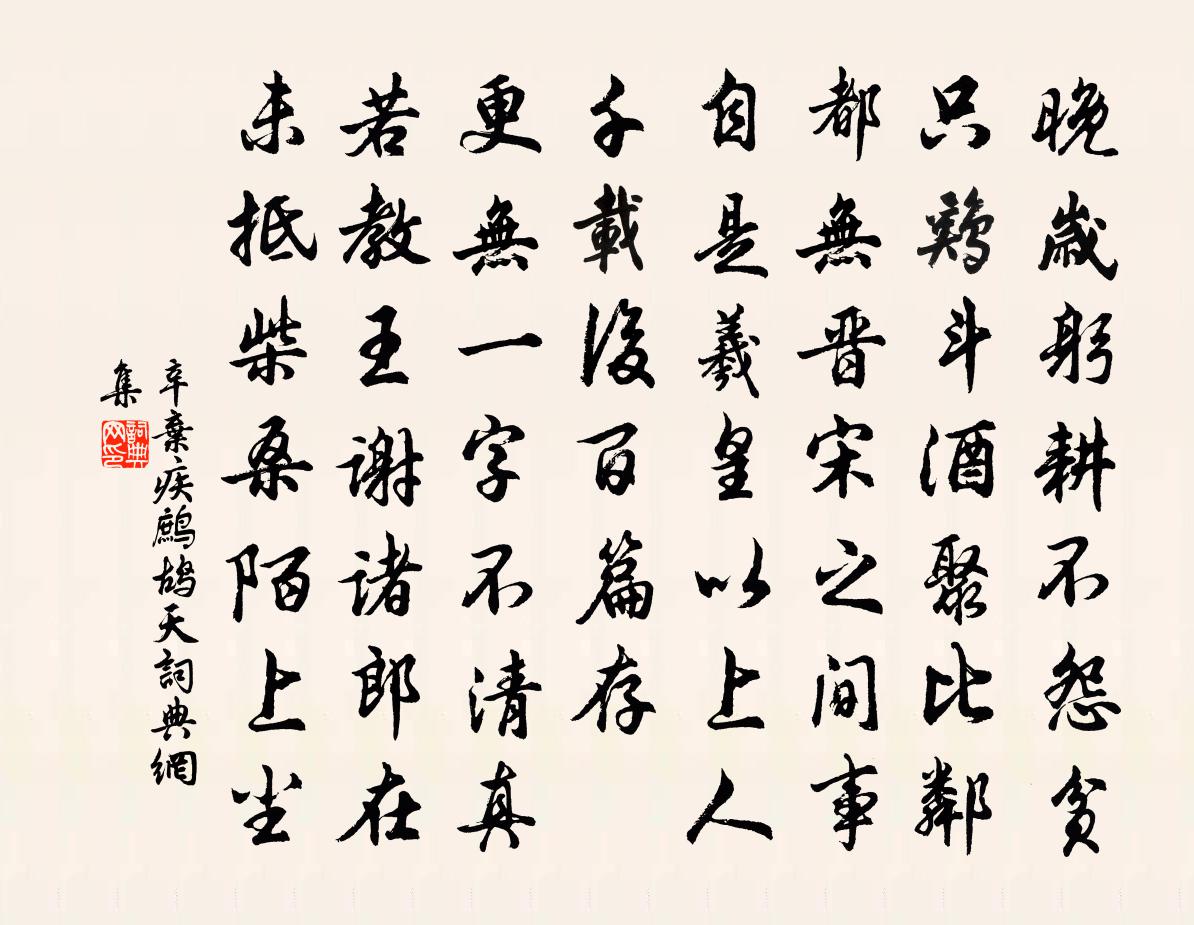 晚歲躬耕不怨貧
只鷄斗酒聚比鄰
都無晋宋之間事
自是羲皇以上人
千載後百篇存
更無一字不清真
若教王謝諸郎在
未抵柴桑陌上尘
辛棄疾鷓鴣天詞典網
集
詞典
网印